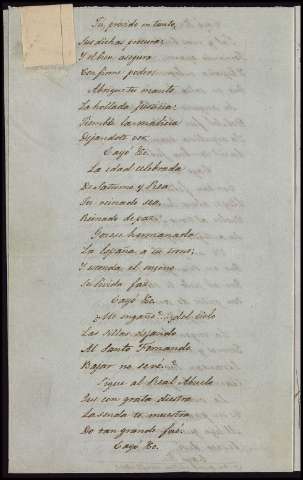 Tu, preside en tanto,
Sus dichas procura:
Y el bien asegura
Con firme poder.
Abrigue tu manto
La hollada justicia:
Tiemble la malicia
Dejandote ver.
Cayó &c.
La edad celebrada
De Saturno y Rea
Tu reinado sea,
Reinado de paz.
Gócese hermanada
La España a tu trono;
Y esconda el encono
Su livida faz.
Cayó &c.
¿Me engaño?.. ¿del Cielo
Las sillas dejando
Al Santo Fernando
Bajar no se ve?
Sigue al Real Abuelo
Que con grata diestra
La senda te muestra
De tan grande fué.
Cayó &c.